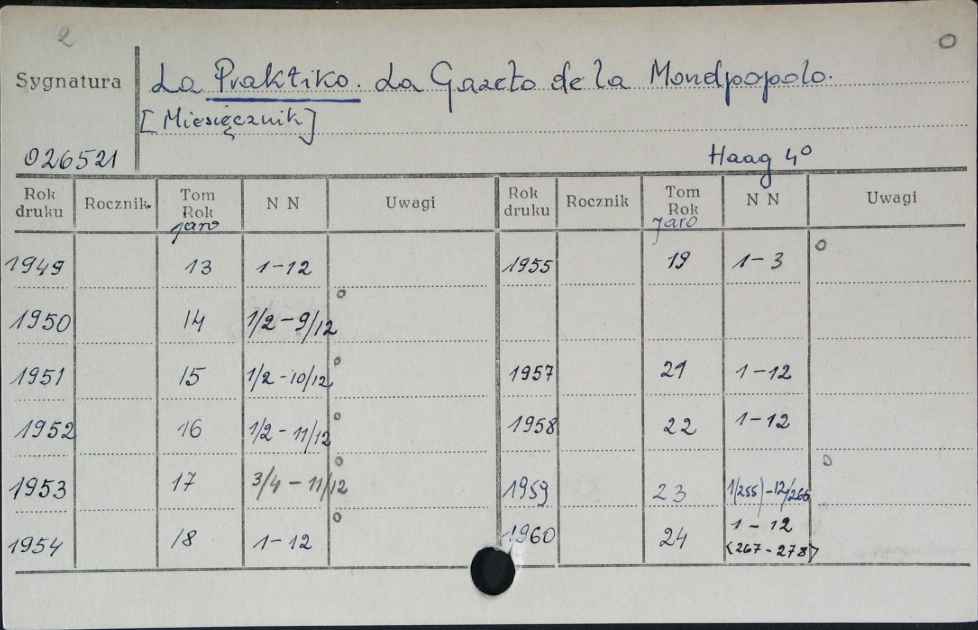 2 0
Sygnatura La Praktiko. La Gazeto de la Mondpopolo.
[Miesięcznik]
026521 Haag 4°
Rok druku Rocznik Tom Rok Jaro N N Uwagi Rok druku Rocznik Tom Rok Jaro N N Uwagi
1949 13 1-12 1955 19 1-3 o
1950 14 1/2-9/12 o
1951 15 1/2-10/12 o 1957 21 1-12
1952 16 1/2-11/12 o 1958 22 1-12
1953 17 3/4-11/12 o 1959 23 1/255)-12/266 o
1954 18 1-12 o 1960 24 1-12
<267-278>